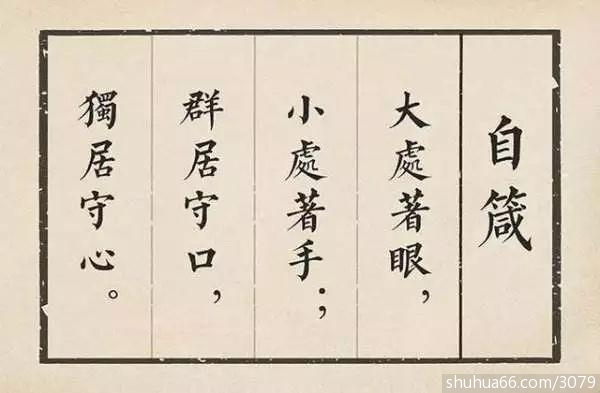 自箴
大處著眼，
小處著手；
群居守口，
獨居守心。
shuhua66.com/3079